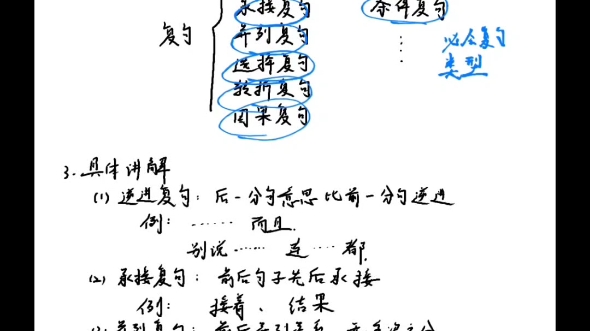 复句
承接复句 条件复句
并列复句
选择复句 必会复句
转折复句 类型
因果复句
3. 具体讲解
(1) 递进复句：后一分句意思比前一分句递进
例：…… 而且
别说…… 连…… 都
(2) 承接复句：前后句子先后承接
例：接着、结果